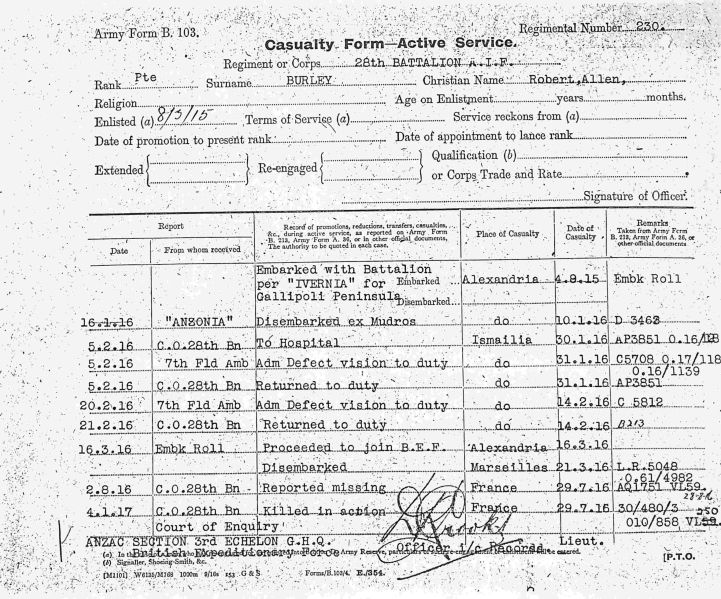 Army Form B. 103.
Regimental Number 230.
Casualty Form—Active Service.
Regiment or Corps 28th BATTALION A.I.F.
Rank Pte Surname BURLEY Christian Name Robert,Allen,
Religion Age on Enlistment years months.
Enlisted (a) 8/3/15 Terms of Service (a) Service reckons from (a)
Date of promotion to present rank Date of appointment to lance rank
Extended Re-engaged Qualification (b)
or Corps Trade and Rate
Signature of Officer.
Report Record of promotions, reductions, transfers, casualties, &c., during active service, as reported on Army Form B. 213, Army Form A. 36, or in other official documents. The authority to be quoted in each case. Place of Casualty Date of Casualty Remarks Taken from Army Form B. 213, Army Form A. 36, or other official documents
Date From whom received
Embarked with Battalion
per "IVERNIA" for Embarked Alexandria 4.8.15 Embk Roll
Gallipoli Peninsula Disembarked
16.1.16 "ANSONIA" Disembarked ex Mudros do 10.1.16 D 3462
5.2.16 C.O.28th Bn To Hospital Ismailia 30.1.16 AP3851 0.16/
5.2.16 7th Fld Amb Adm Defect vision to duty do 31.1.16 C5708 0.17/118
0.16/1139
5.2.16 C.O.28th Bn Returned to duty do 31.1.16 AP3851
20.2.16 7th Fld Amb Adm Defect vision to duty do 14.2.16 C 5812
21.2.16 C.O.28th Bn Returned to duty do 14.2.16 B213
16.3.16 Embk Roll Proceeded to join B.E.F. Alexandria 16.3.16
Disembarked Marseilles 21.3.16 L.R.5048
0.61/4982
2.8.16 C.O.28th Bn Reported missing France 29.7.16 AQ1751 VL59.
4.1.17 C.O.28th Bn Killed in action France 29.7.16 30/480/3
Court of Enquiry 010/858 VL
250
ANZAC SECTION 3rd ECHELON G.H.Q. Lieut.
British Expeditionary Force Officer i/c Records
(b) Signaller, Shoeing-Smith, &c.
[P.T.O.
Forms/B.103/4. E./354.